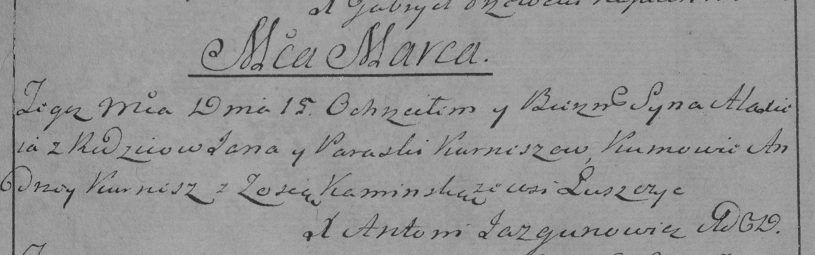 X Gabryel
Mca Marca.
Tegoz Mca Dnia 15. Ochrzciłem y Bierzm Syna Alaxie
ia z Rodzicow Jana y Paraski Karniszow, Kumowie An
drzey Karnisz z Zosią Kaminską ze wsi Łuszczyc
X Antoni Jazgunowicz